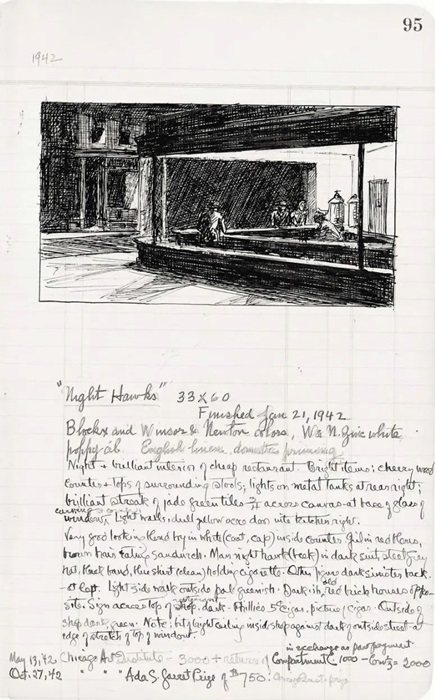 95
1942
"Night Hawks" 33 X 60
Finished Jan 21, 1942
Blockx and Winsor & Newton colors, W & N. Zinc white
poppy oil. English linen, domestic priming
Night + brilliant interior of cheap restaurant. Bright items: cherry wood
counter + tops of surrounding stools; lights on metal tanks at rear right;
brilliant streak of jade green tiles 3/4 across canvas - at base of glass of
window curving at corner. Light walls, dull yellow ocre door into kitchen right.
Very good looking blond boy in white (coat, cap) inside counter. Girl in red blouse,
brown hair eating sandwich. Man night hawk (beak) in dark suit, steel grey
hat, black band, blue shirt (clean) holding cigarette. Other figure dark sinister back -
at left. Light side walk outside pale greenish. Darkish red brick houses oppo-
site. Sign across top of restaurant, dark - Phillies 5¢ cigar, picture of cigar. Outside of
shop dark, green. Note: bit of bright ceiling inside shop against dark of outside street - at
edge of stretch of top of window.
in exchange as part payment
May 13, '42 Chicago Art Institute - 3000 + return of Compartment C 1000
Oct. 27, '42 " " " Ada S. Garret Prize of 750: